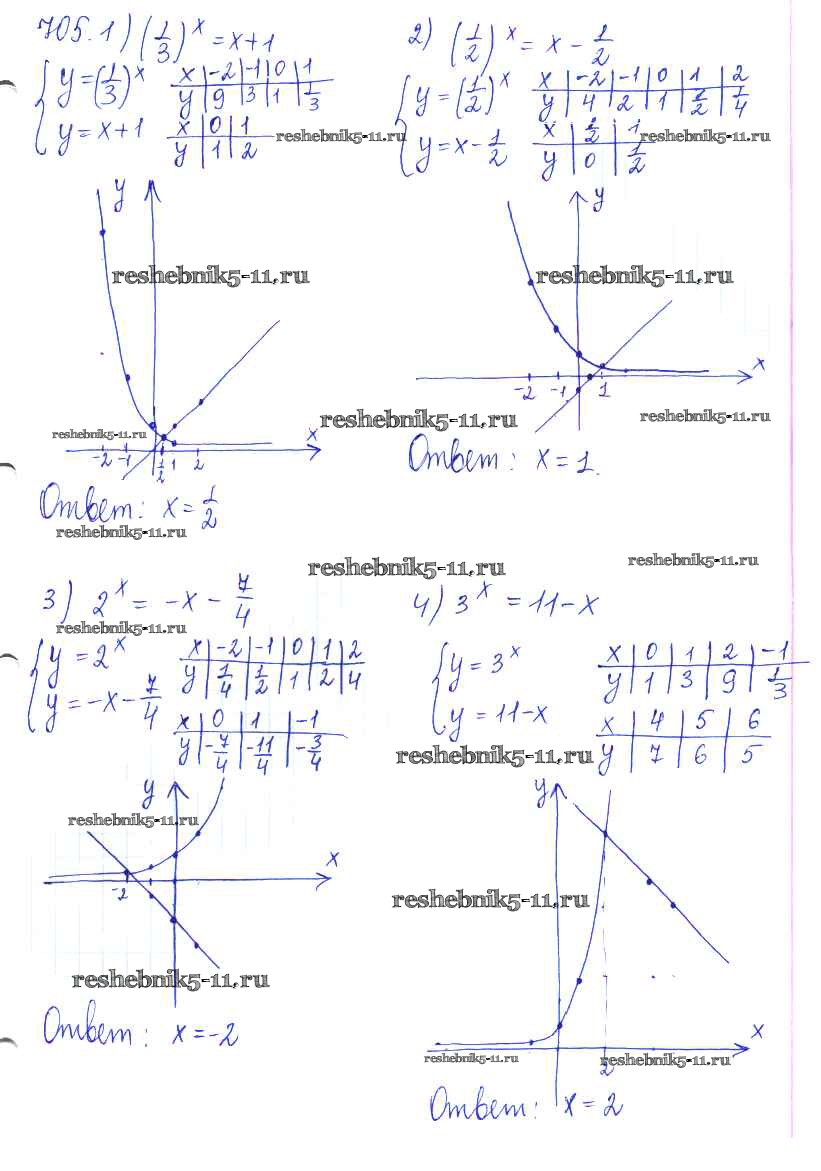 705. 1) (1/3)^x = x+1
{ y = (1/3)^x
x | -2 | -1 | 0 | 1
y | 9 | 3 | 1 | 1/3
y = x+1
x | 0 | 1
y | 1 | 2
reshebnik5-11.ru
y
reshebnik5-11.ru
reshebnik5-11.ru
x
-2 -1 1/2 1 2
Ответ: x = 1/2
reshebnik5-11.ru
2) (1/2)^x = x - 1/2
{ y = (1/2)^x
x | -2 | -1 | 0 | 1 | 2
y | 4 | 2 | 1 | 1/2 | 1/4
y = x - 1/2
x | 1/2 | 1
y | 0 | 1/2
reshebnik5-11.ru
y
reshebnik5-11.ru
x
-2 -1 1
reshebnik5-11.ru
reshebnik5-11.ru
Ответ: x = 1.
reshebnik5-11.ru
reshebnik5-11.ru
3) 2^x = -x - 7/4
reshebnik5-11.ru
{ y = 2^x
x | -2 | -1 | 0 | 1 | 2
y | 1/4 | 1/2 | 1 | 2 | 4
y = -x - 7/4
x | 0 | 1 | -1
y | -7/4 | -11/4 | -3/4
y
reshebnik5-11.ru
x
-2
reshebnik5-11.ru
Ответ: x = -2
4) 3^x = 11-x
{ y = 3^x
x | 0 | 1 | 2 | -1
y | 1 | 3 | 9 | 1/3
y = 11-x
x | 4 | 5 | 6
y | 7 | 6 | 5
reshebnik5-11.ru
y
reshebnik5-11.ru
x
reshebnik5-11.ru
reshebnik5-11.ru
2
Ответ: x = 2